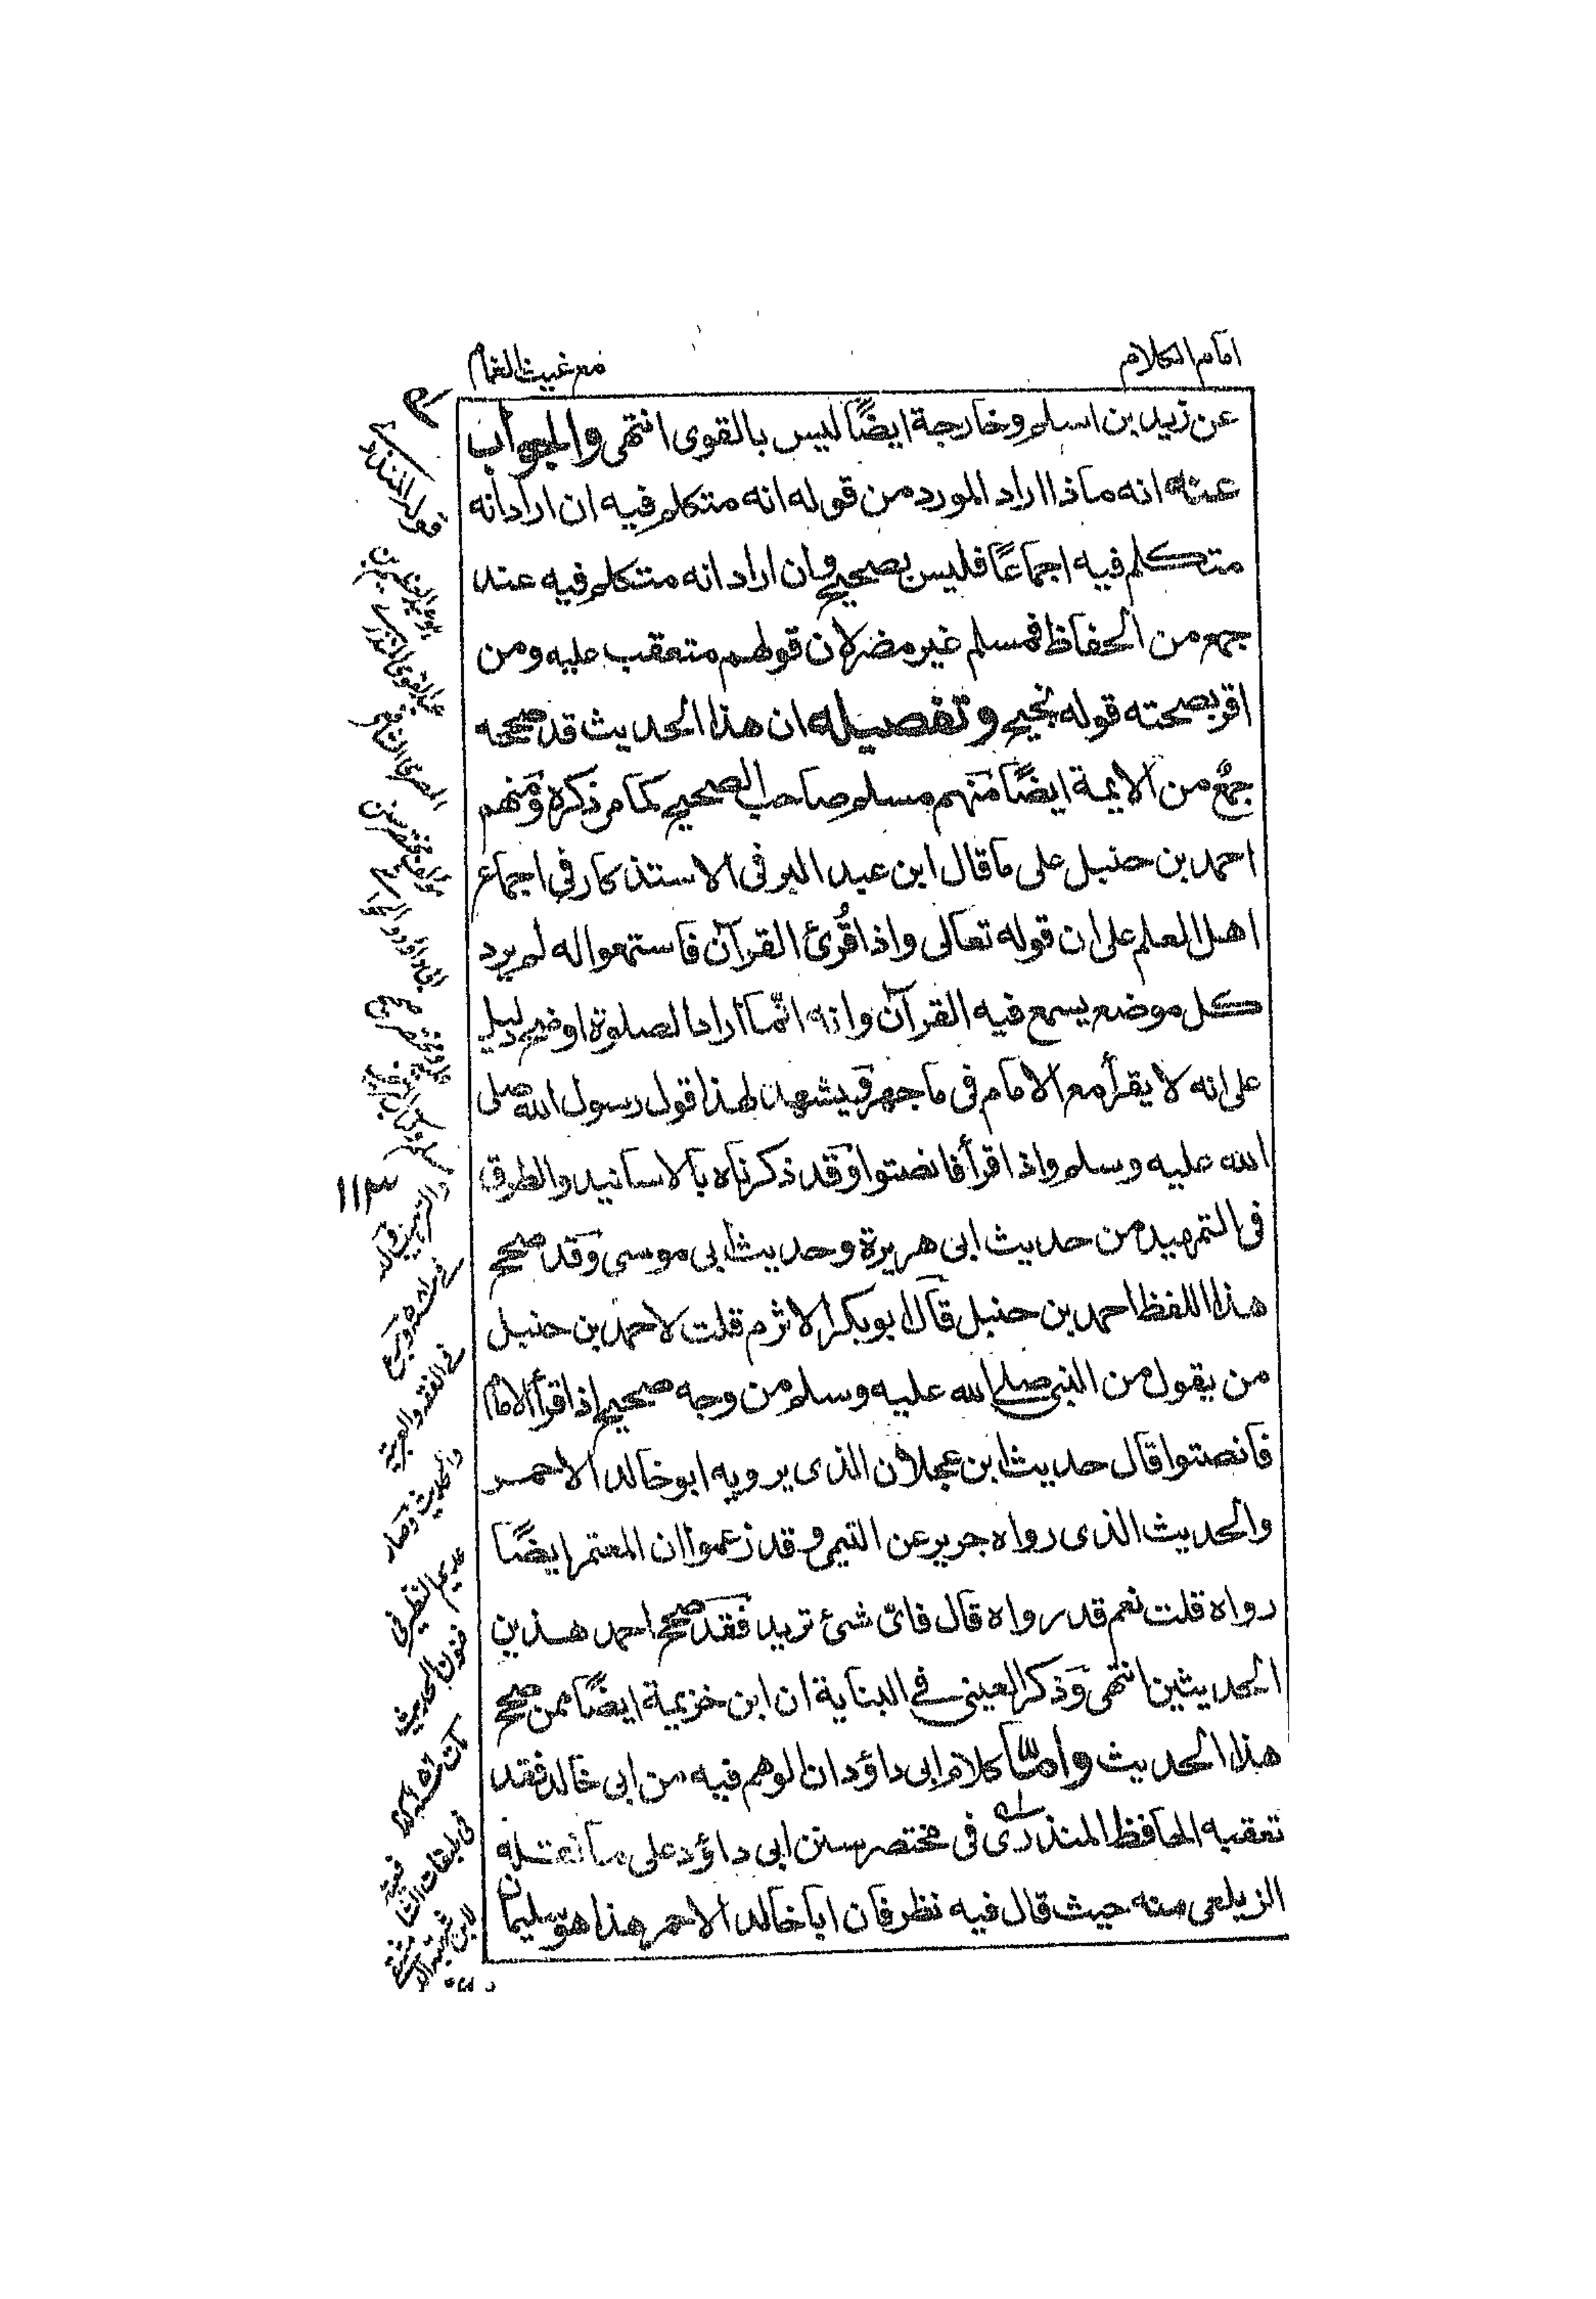 امام الكلام
مع غيث الغمام
عن زيد بن اسلم وخارجة ايضًا ليس بالقوى انتهى والجواب
عنه انه ماذا اراد المورد من قوله انه متكلم فيه ان ارادانه
متكلم فيه اجماعًا فليس بصحيح وان اراد انه متكلم فيه عند
جمع من الحفاظ فمسلم غير مضر لان قولهم متعقب عليه ومن
اقر بصحته قوله نجيح وتفصيله ان هذا الحديث قد صححه
جمعٌ من الايمة ايضًا منهم مسلم صاحب الصحيح كما مر ذكره ومنهم
احمد بن حنبل على ما قال ابن عبد البر فى الاستذكار فى اجماع
اهل العلم على ان قوله تعالى واذا قُرئ القرآن فاستمعوا له لم يرد
كل موضع يسمع فيه القرآن وانه انّما اراد الصلوة اوضح دليل
على انه لا يقرأ مع الامام فى ما جهر ويشهد لهذا قول رسول الله صلى
الله عليه وسلم واذا قرأ فانصتوا وقد ذكرناه بالاسانيد والطرق
فى التمهيد من حديث ابى هريرة وحديث ابى موسى وقد صحح
هذا اللفظ احمد بن حنبل قال ابوبكر الاثرم قلت لاحمد بن حنبل
من يقول من النبى صلے الله عليه وسلم من وجه صحيح اذا قرأ الامام
فانصتوا قال حديث ابن عجلان الذى يرويه ابو خالد الاحمر
والحديث الذى رواه جرير عن التيمى وقد زعموا ان المعتمر ايضًا
رواه قلت نعم قد رواه قال فاىّ شئ تريد فقد صحح احمد هذين
الحديثين انتهى وذكر العينى فے البناية ان ابن خزيمة ايضًا ممن صحح
هذا الحديث وامّا كلام ابى داؤد ان الوهم فيه من ابى خالد فقد
تعقبه الحافظ المنذرى فى مختصر سنن ابى داؤد على ما نقله
الزيلعى منه حيث قال فيه نظر فان ابا خالد الاحمر هذا هو سليمان
قوله المنذرے
المصرى الشافعى
مؤلف مختصر سنن
ابى داؤد
١١٣
فے الفقه والعربية
والحديث وصار
عديم النظير فى
فنون الحديث
فى طبقات الشافعية